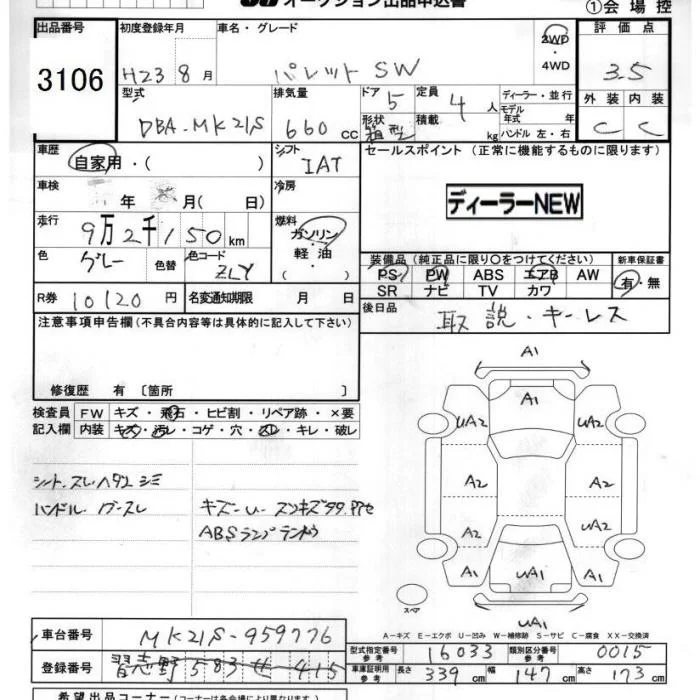 オークション出品申込書
①会場控
出品番号 初度登録年月 車名・グレード 2WD 評価点
3106 H23 8月 パレット SW 4WD 3.5
型式 排気量 ドア 定員 ディーラー・並行 外装 内装
DBA-MK21S 660cc 5 4人 モデル年式 年 C C
形状 箱型 積載 kg ハンドル 左・右
車歴 自家用・( ) シフト IAT セールスポイント (正常に機能するものに限ります)
車検 年 月( 日) 冷房
ディーラーNEW
走行 9万2千150km 燃料 ガソリン・軽油・( )
色 グレー 色替 色コード ZLY 装備品(純正品に限り○をつけてください) 新車保証書
PS PW ABS エアB AW 有・無
SR ナビ TV カワ
R券 10120円 名変通知期限 月 日 後日品 取説・キーレス
注意事項申告欄(不具合内容等は具体的に記入して下さい)
修復歴 有〔箇所 〕
検査員 FW キズ・飛石・ヒビ割・リペア跡・×要
記入欄 内装 キズ・汚レ・コゲ・穴・スレ・キレ・破レ
シート スレ ヘタリ シミ
ハンドル・グースレ キズ-U-
ABSランプ
A1
A1
UA2 UA2
A2 A2
A2 UA2
A1 UA1 A1
UA1
スペア
A-キズ E-エクボ U-凹み W-補修跡 S-サビ C-腐食 XX-交換済
車台番号 MK21S-959776
型式指定番号参考 16033 類別区分番号参考 0015
登録番号 習志野 583 せ 415
車庫証明用参考 長さ 339cm 幅 147cm 高さ 173cm
希望出品コーナー(コーナーは各会場により異なります)